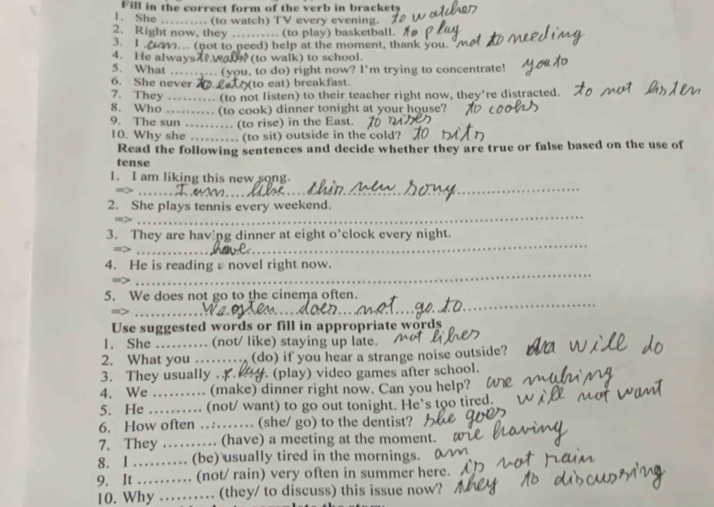 Fill in the correct form of the verb in brackets
1. She .......... (to watch) TV every evening. to watches
2. Right now, they .......... (to play) basketball. to play
3. I .am... (not to need) help at the moment, thank you. not to needing
4. He always to walks (to walk) to school.
5. What .......... (you, to do) right now? I'm trying to concentrate! you to
6. She never to eats (to eat) breakfast.
7. They .......... (to not listen) to their teacher right now, they're distracted. to not listen
8. Who .......... (to cook) dinner tonight at your house? to cooks
9. The sun .......... (to rise) in the East. to rises
10. Why she .......... (to sit) outside in the cold? to sits
Read the following sentences and decide whether they are true or false based on the use of
tense
1. I am liking this new song.
=> I am like this new song
2. She plays tennis every weekend.
=>
3. They are having dinner at eight o'clock every night.
=> have
4. He is reading a novel right now.
=>
5. We does not go to the cinema often.
=> We often does not go to
Use suggested words or fill in appropriate words
1. She .......... (not/ like) staying up late. not likes
2. What you .........., (do) if you hear a strange noise outside? will do
3. They usually .......... (play) video games after school.
4. We .......... (make) dinner right now. Can you help? are making
5. He .......... (not/ want) to go out tonight. He's too tired. will not want
6. How often .......... (she/ go) to the dentist? she goes
7. They .......... (have) a meeting at the moment. are having
8. I .......... (be) usually tired in the mornings. am
9. It .......... (not/ rain) very often in summer here. is not rain
10. Why .......... (they/ to discuss) this issue now? they to discussing